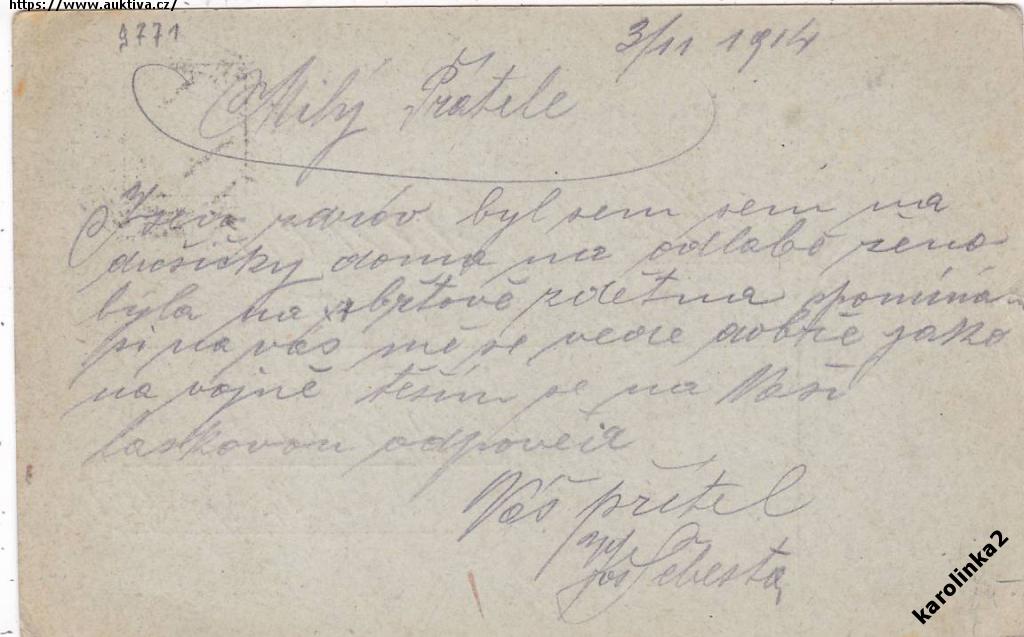 https://www.auktiva.cz/
9771
3/11 1914
Milý Přátele
zdráv byl sem sem na
dušičky doma na odlabě žena
byla na hřbitově zdětma spomíná
si na vás mě se vede dobře jako
na vojně těším se na Vaši
laskovou odpoveď
Váš přítel
Jos Šebesta
karolinka2